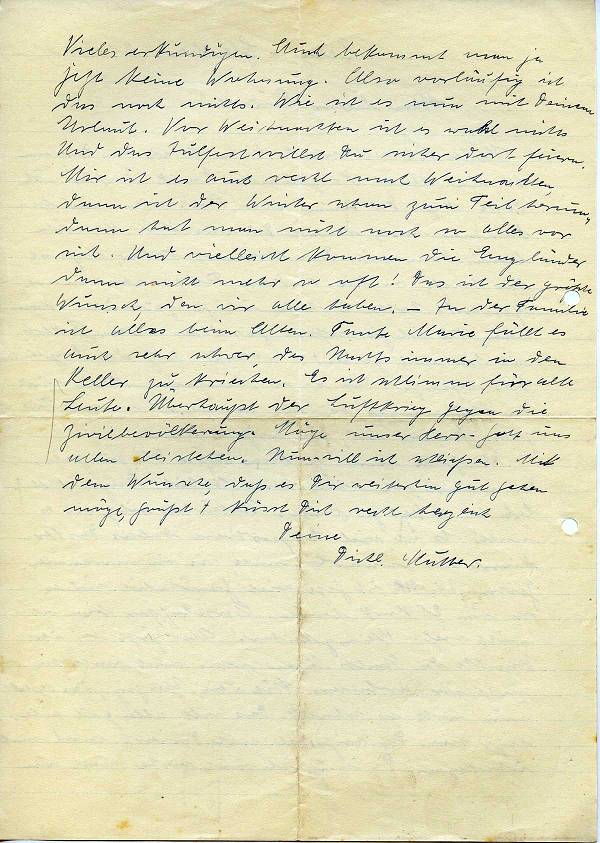 Vieles erkundigen. Auch bekommt man ja
jetzt keine Wohnung. Also vorläufig ist
das noch nichts. Wie ist es nun mit Deinem
Urlaub. Vor Weihnachten ist es wohl nichts
Und das Julfest willst Du sicher dort feiern.
Mir ist es auch recht nach Weihnachten,
dann ist der Winter schon zum Teil herum,
dann hat man nicht noch so alles vor
sich. Und vielleicht kommen die Engländer
dann nicht mehr so oft! Das ist der größte
Wunsch, den wir alle haben. – In der Familie
ist alles beim Alten. Tante Marie fällt es
auch sehr schwer, des Nachts immer in den
Keller zu kriechen. Es ist schlimm für alte
Leute. Überhaupt der Luftkrieg gegen die
Zivilbevölkerung. Möge unser Herr-Gott uns
allen beistehen. Nun will ich schließen. Mit
dem Wunsche, daß es Dir weiterhin gut gehen
möge, grüßt + küsst Dich recht herzlich
Deine
Dichl. Mutter.